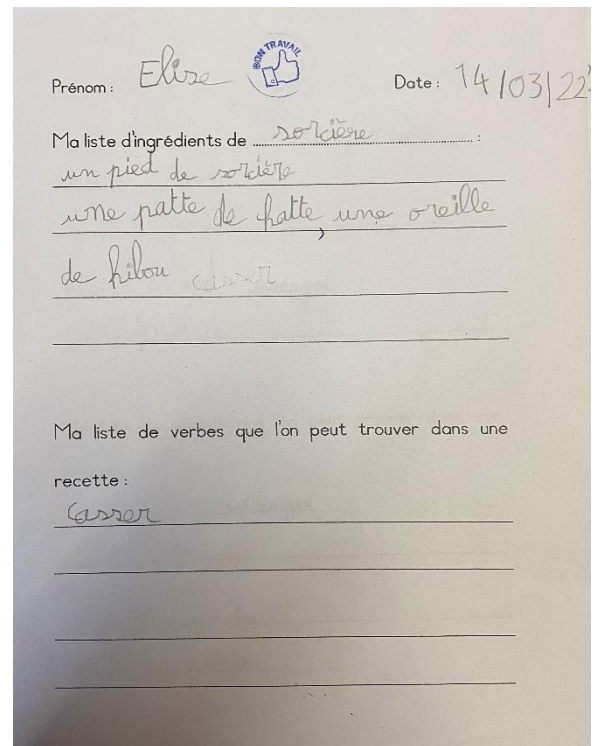 BON TRAVAIL
Prénom : Elise Date : 14/03/22
Ma liste d'ingrédients de sorcière :
un pied de sorcière
une patte de hatte, une oreille
de hibou casser
Ma liste de verbes que l'on peut trouver dans une
recette :
Casser